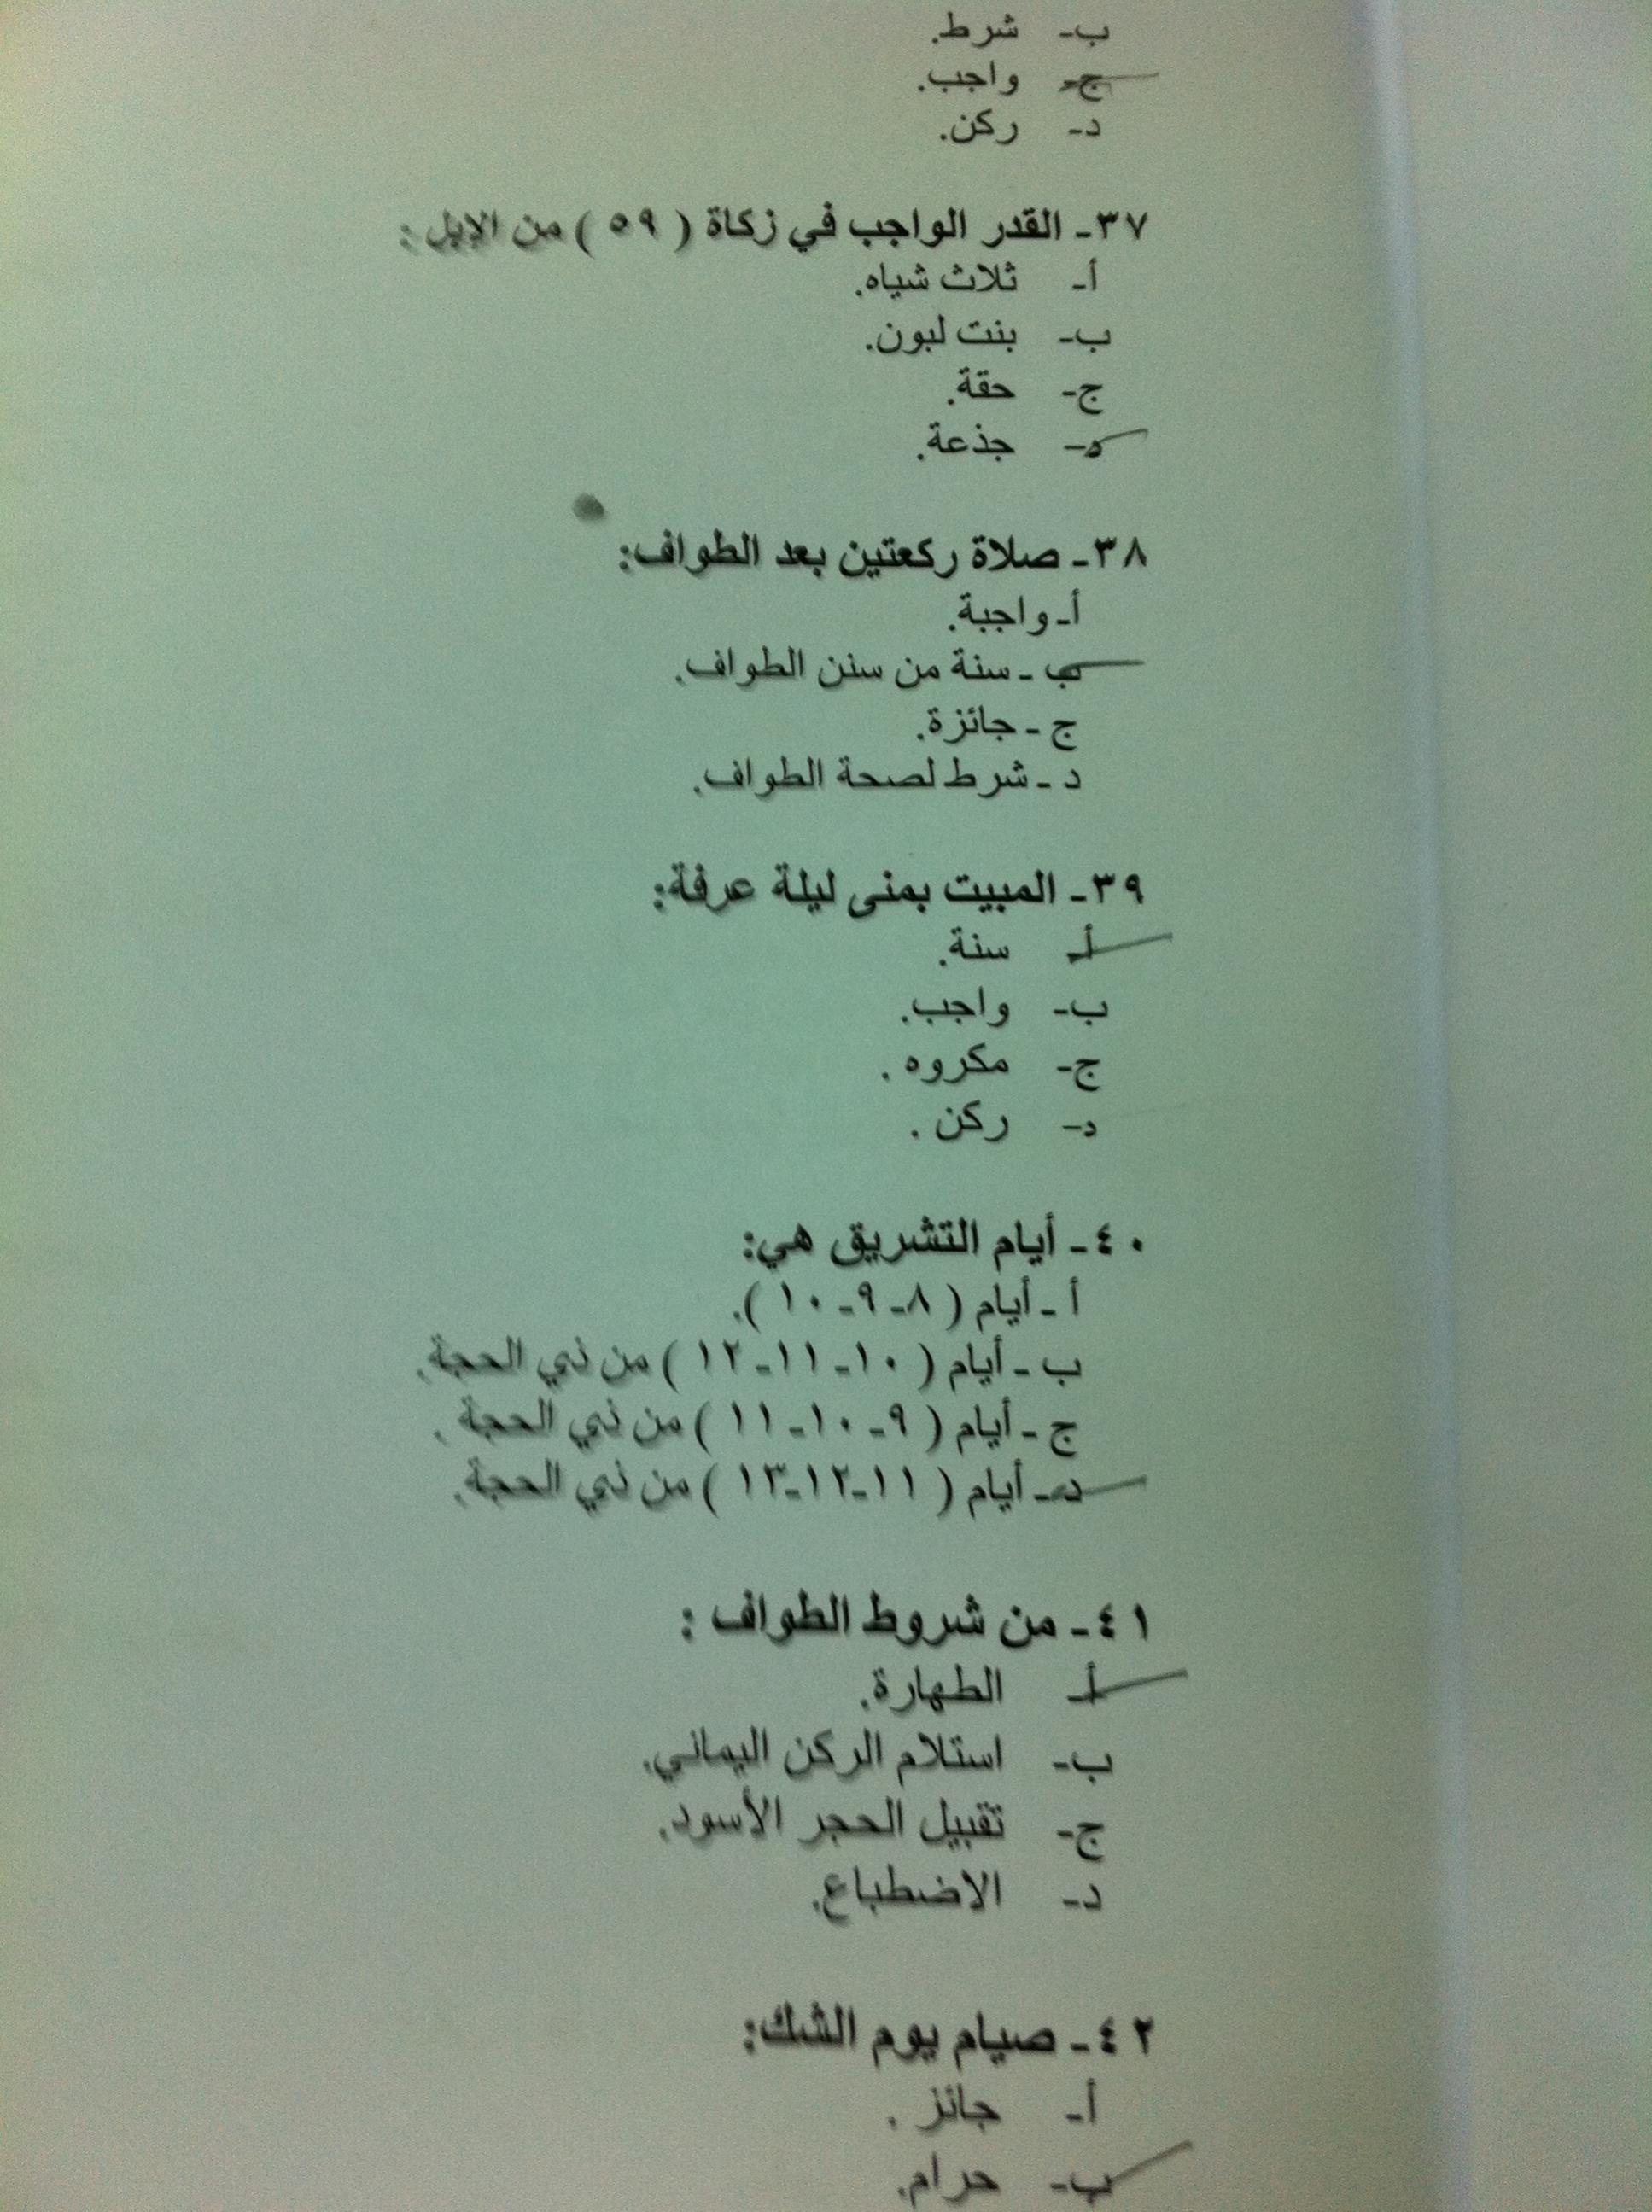 ب- شرط.
ج- واجب.
د- ركن.
٣٧- القدر الواجب في زكاة ( ٥٩ ) من الإبل :
أ- ثلاث شياه.
ب- بنت لبون.
ج- حقة.
د- جذعة.
٣٨- صلاة ركعتين بعد الطواف:
أ- واجبة.
ب - سنة من سنن الطواف.
ج - جائزة.
د - شرط لصحة الطواف.
٣٩- المبيت بمنى ليلة عرفة:
أ- سنة.
ب- واجب.
ج- مكروه .
د- ركن .
٤٠- أيام التشريق هي:
أ - أيام ( ٨-٩-١٠ ).
ب - أيام ( ١٠-١١-١٢ ) من ذي الحجة.
ج - أيام ( ٩-١٠-١١ ) من ذي الحجة .
د- أيام ( ١١-١٢-١٣ ) من ذي الحجة.
٤١- من شروط الطواف :
أ- الطهارة.
ب- استلام الركن اليماني.
ج- تقبيل الحجر الأسود.
د- الاضطباع.
٤٢- صيام يوم الشك:
أ- جائز .
ب- حرام.